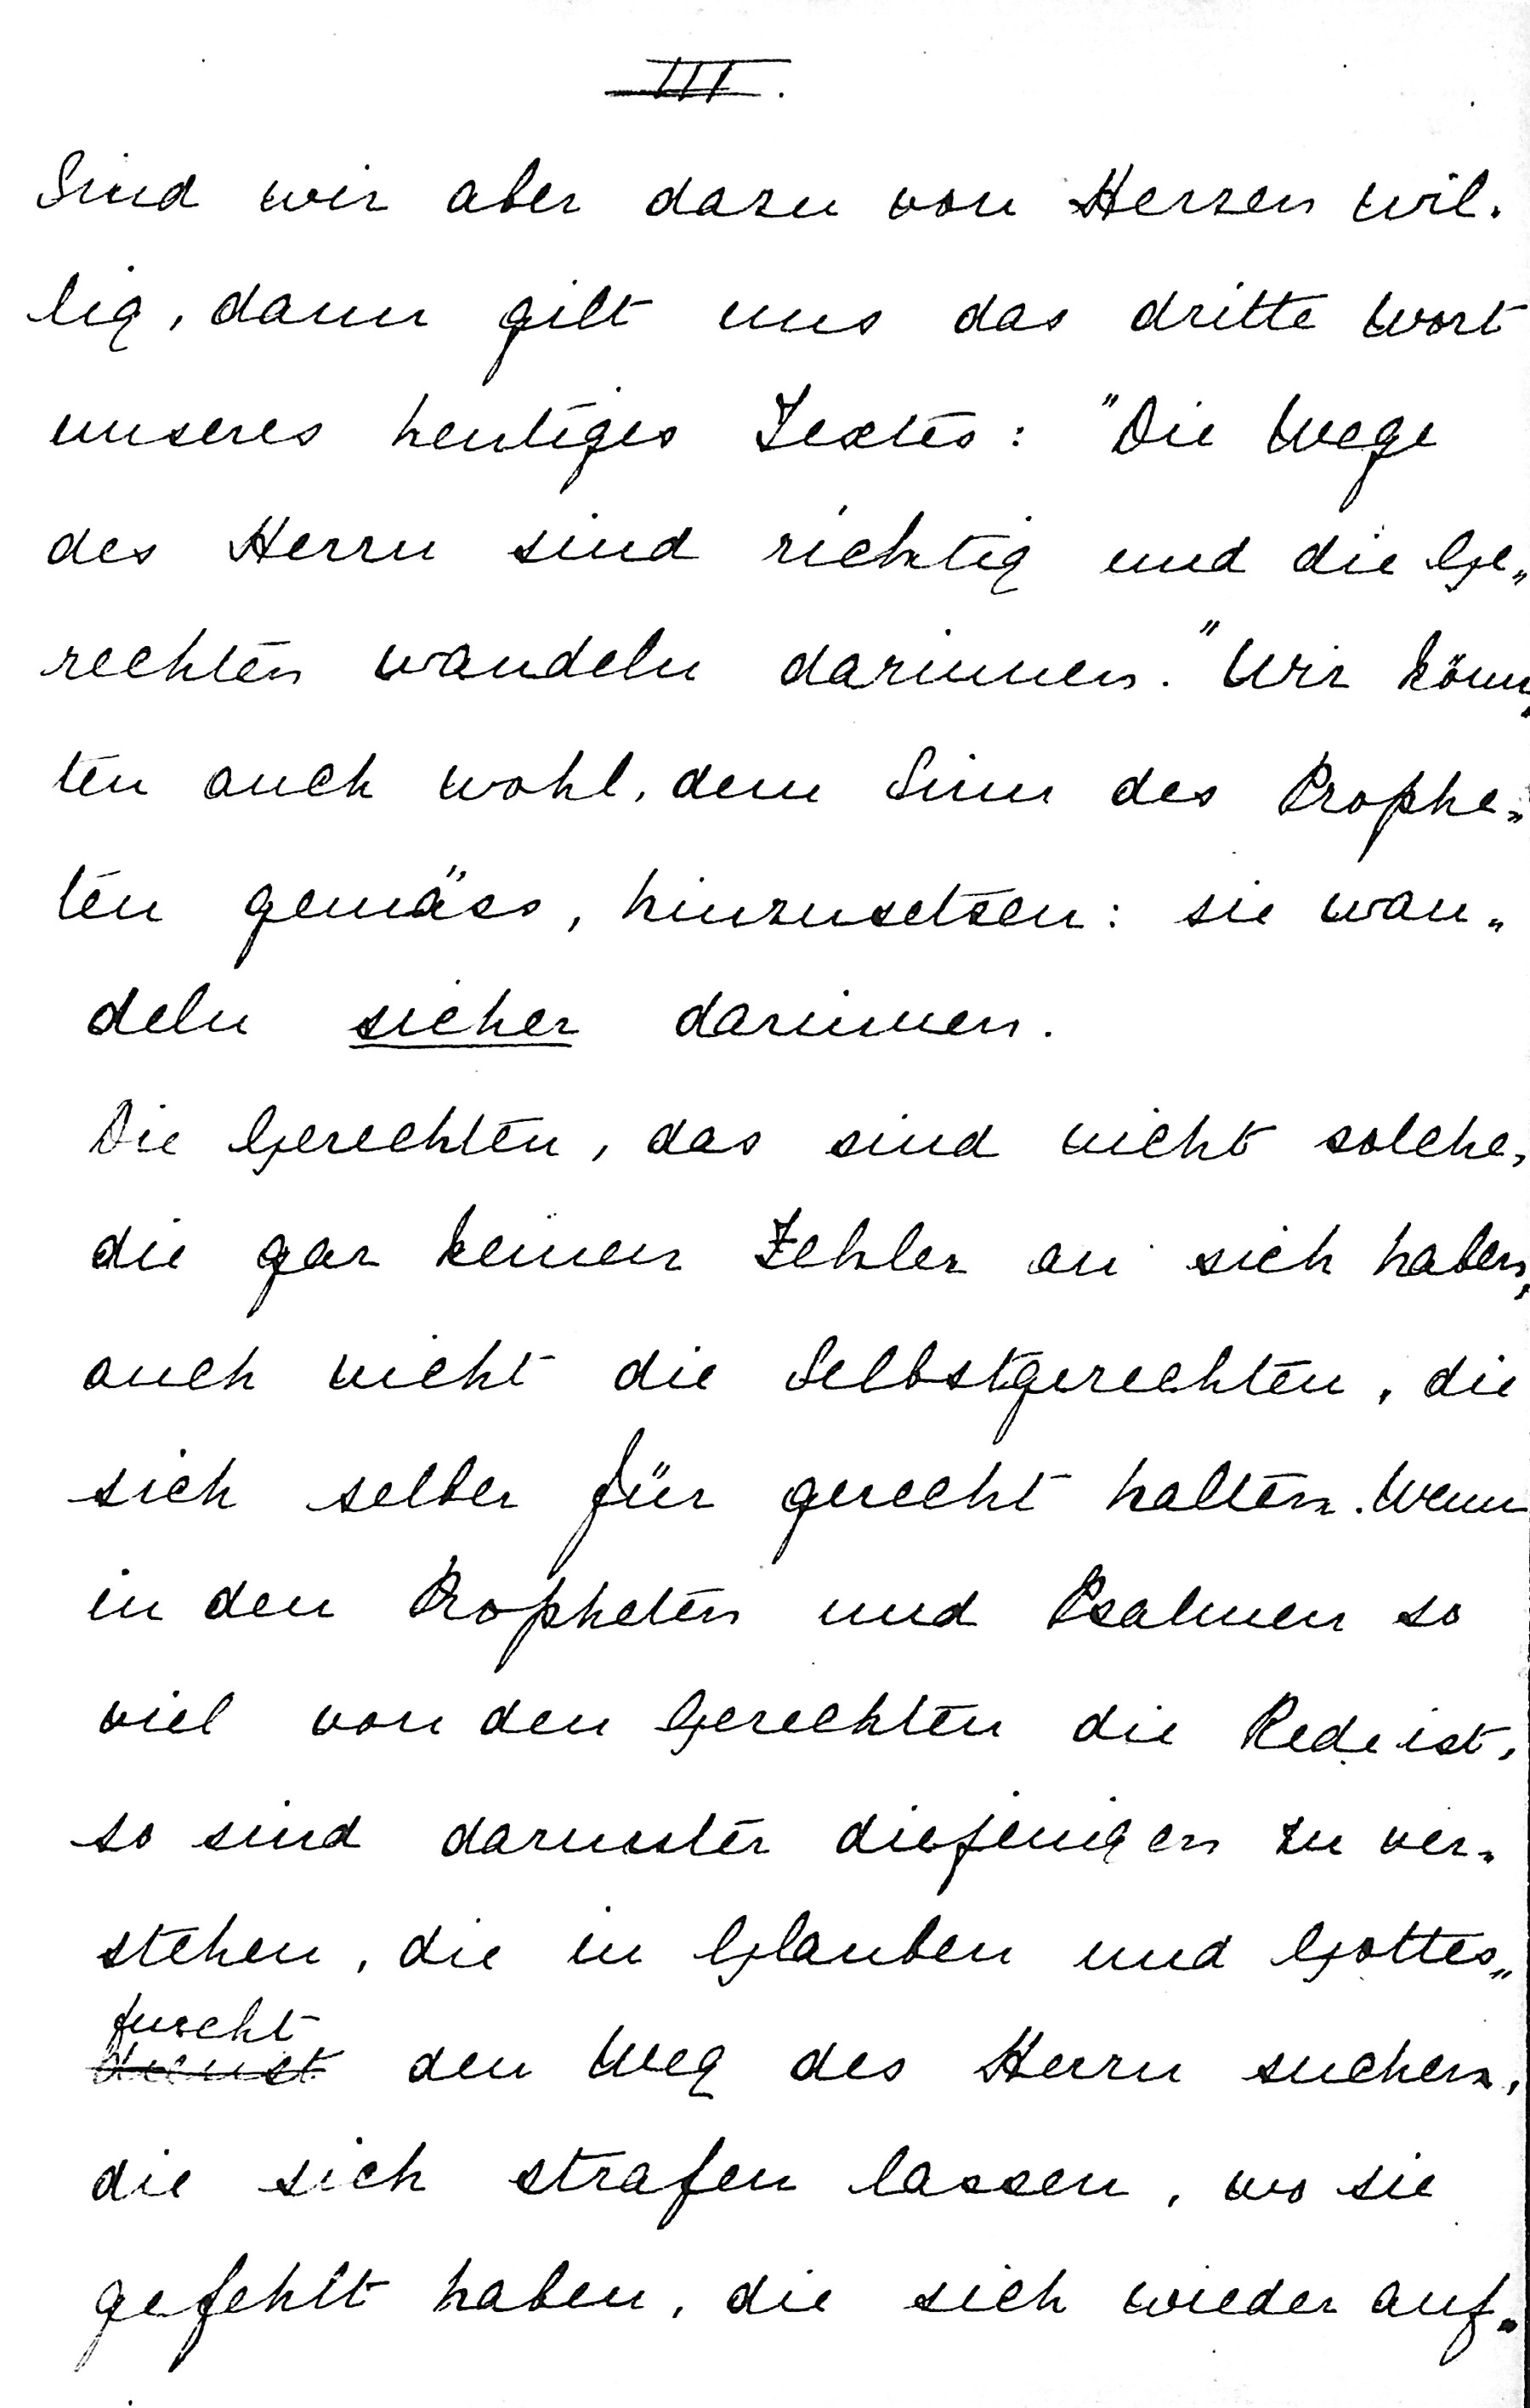 III.
Sind wir aber dazu von Herzen wil-
lig, dann gilt uns das dritte Wort
unseres heutiges Textes: "Die Wege
des Herrn sind richtig und die Ge-
rechten wandeln darinnen." Wir könn-
ten auch wohl, dem Sinn des Prophe-
ten gemäss, hinzusetzen: sie wan-
deln sicher darinnen.
Die Gerechten, das sind nicht solche,
die gar keinen Fehler an sich haben,
auch nicht die Selbstgerechten, die
sich selber für gerecht halten. Wenn
in den Propheten und Psalmen so
viel von den Gerechten die Rede ist,
so sind darunter diejenigen zu ver-
stehen, die in Glauben und Gottes-
furcht
dienst den Weg des Herrn suchen,
die sich strafen lassen, wo sie
gefehlt haben, die sich wieder auf-